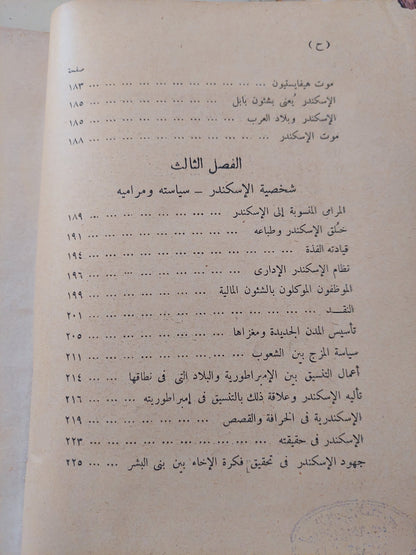 (ح)
صفحة
موت هيفايستيون ... ... ... ... ... ... ... ... ... ... ١٨٣
الإسكندر يُعنى بشئون بابل ... ... ... ... ... ... ... ١٨٥
الإسكندر وبلاد العرب ... ... ... ... ... ... ... ... ١٨٥
موت الإسكندر ... ... ... ... ... ... ... ... ... ... ١٨٨
الفصل الثالث
شخصية الإسكندر – سياسته ومراميه
المرامى المنسوبة إلى الإسكندر ... ... ... ... ... ... ... ١٨٩
خُلق الإسكندر وطباعه ... ... ... ... ... ... ... ... ١٩١
قيادته الفذة ... ... ... ... ... ... ... ... ... ... ١٩٤
نظام الإسكندر الإدارى ... ... ... ... ... ... ... ... ١٩٦
الموظفون الموكلون بالشئون المالية ... ... ... ... ... ... ١٩٩
النقــد ... ... ... ... ... ... ... ... ... ... ... ٢٠١
تأسيس المدن الجديدة ومغزاها ... ... ... ... ... ... ... ٢٠٥
سياسة المزج بين الشعوب ... ... ... ... ... ... ... ... ٢١١
أعمال التنسيق بين الإمبراطورية والبلاد التى فى نطاقها ... ... ٢١٤
تأليه الإسكندر وعلاقة ذلك بالتنسيق فى إمبراطوريته ... ... ٢١٦
الإسكندرية فى الخرافة والقصص ... ... ... ... ... ... ٢١٩
الإسكندر فى حقيقته ... ... ... ... ... ... ... ... ٢٢٣
جهود الإسكندر فى تحقيق فكرة الإخاء بين بنى البشر ... ... ٢٢٥